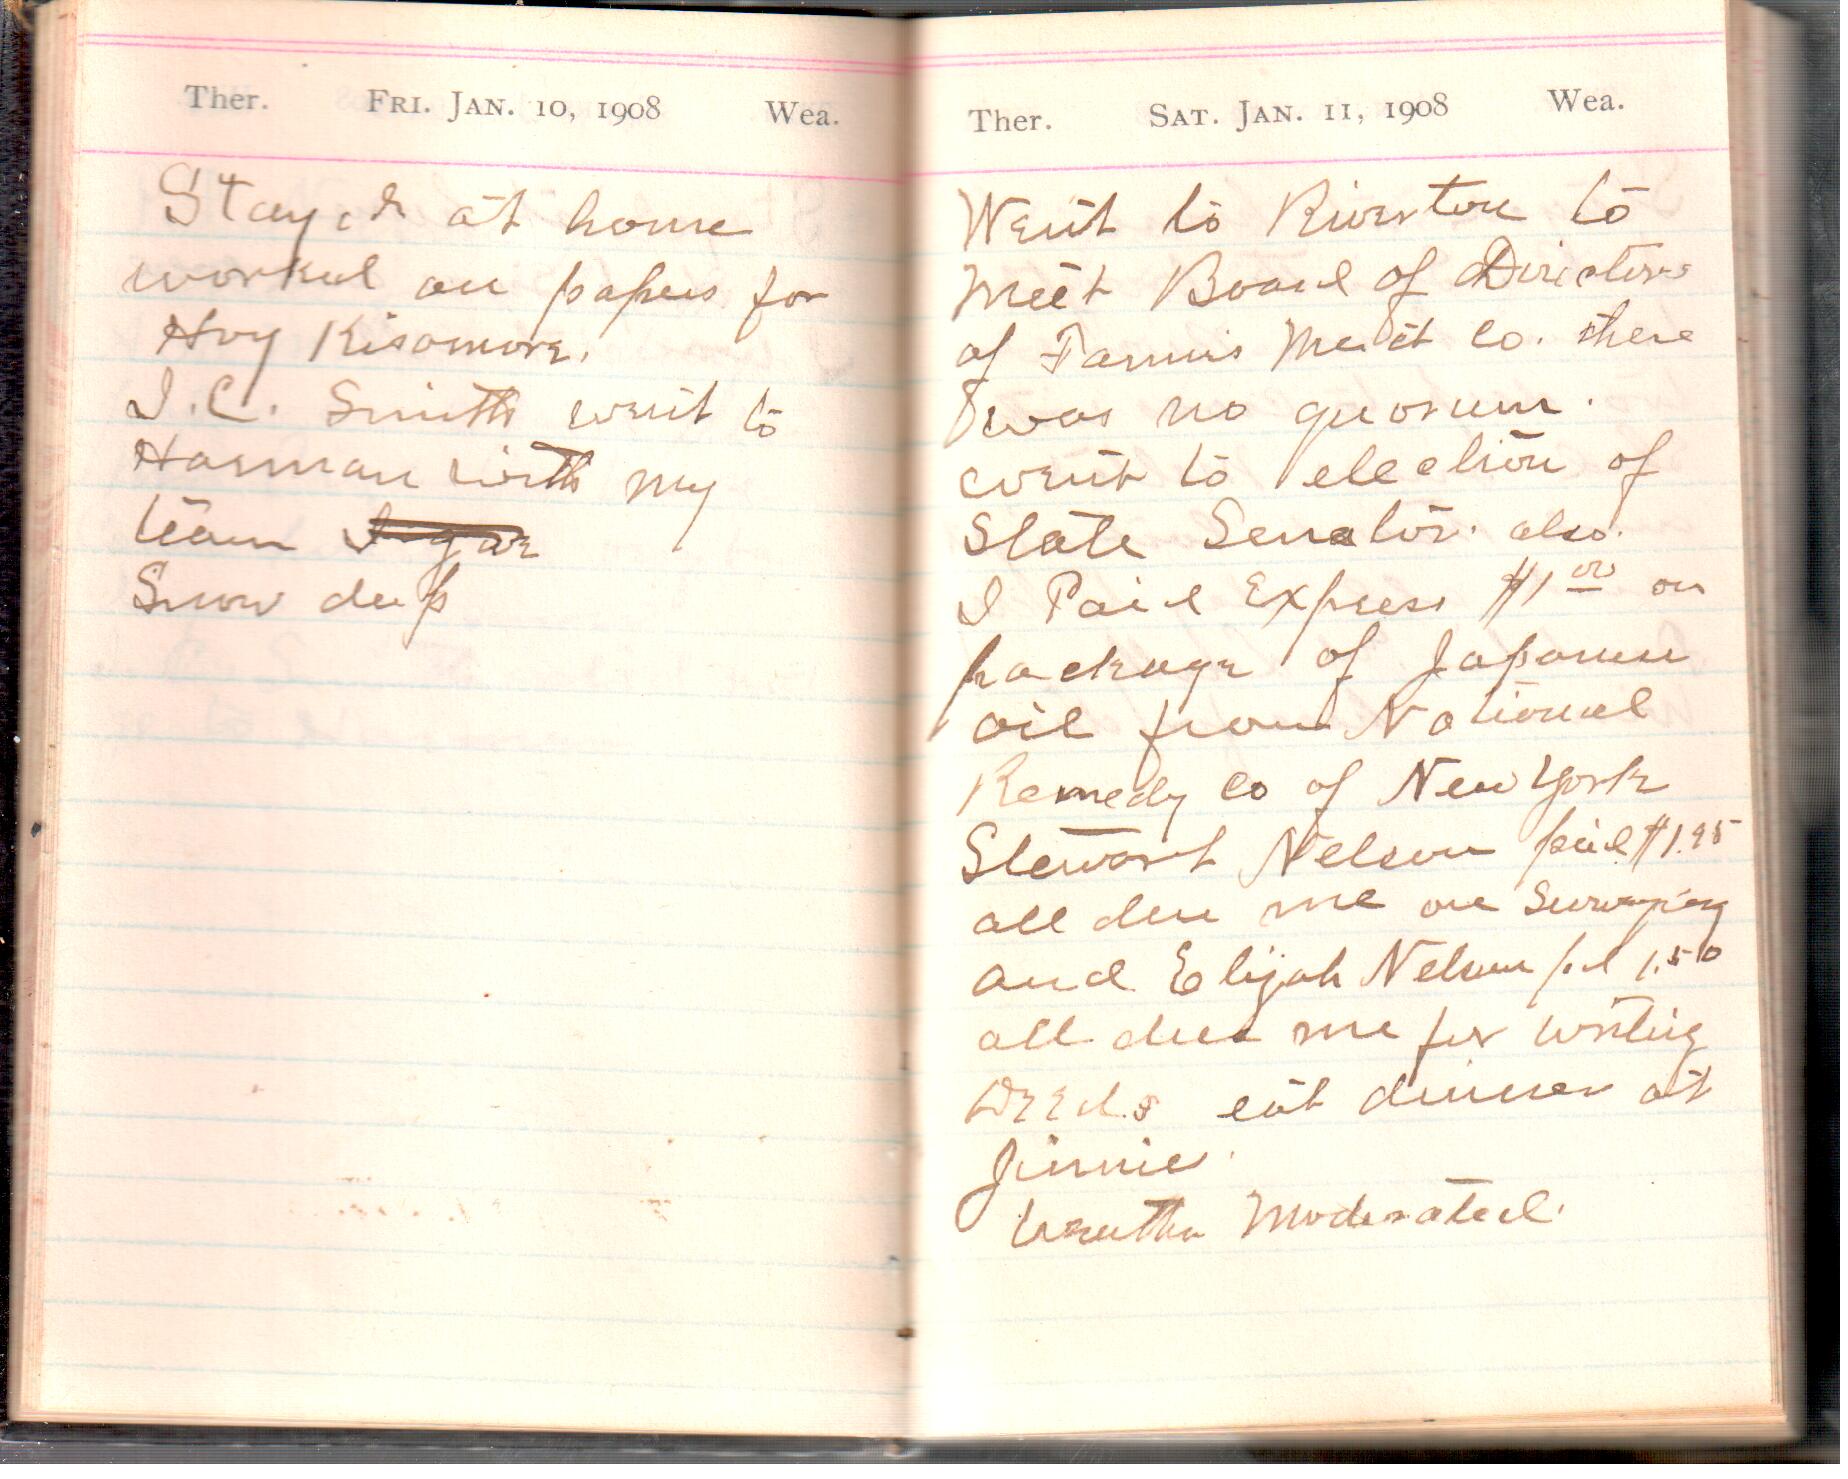 Ther. Fri. Jan. 10, 1908 Wea.
Stayed at home
worked on papers for
Hoy Kisamore.
I. C. Smith went to
Harman with my
team
Snow deep
Ther. Sat. Jan. 11, 1908 Wea.
Went to Riverton to
Meet Board of Directors
of Farmers Merct Co. there
was no quorum.
went to election of
State Senator. also.
I Paid Express $1.00 on
package of Japanese
oil from National
Remedy Co of New York
Stewart Nelson paid $1.95
all due me on Surveying
and Elijah Nelson pd 1.50
all due me for writing
Deeds eat dinner at
Jinnie.
Weather Moderated.